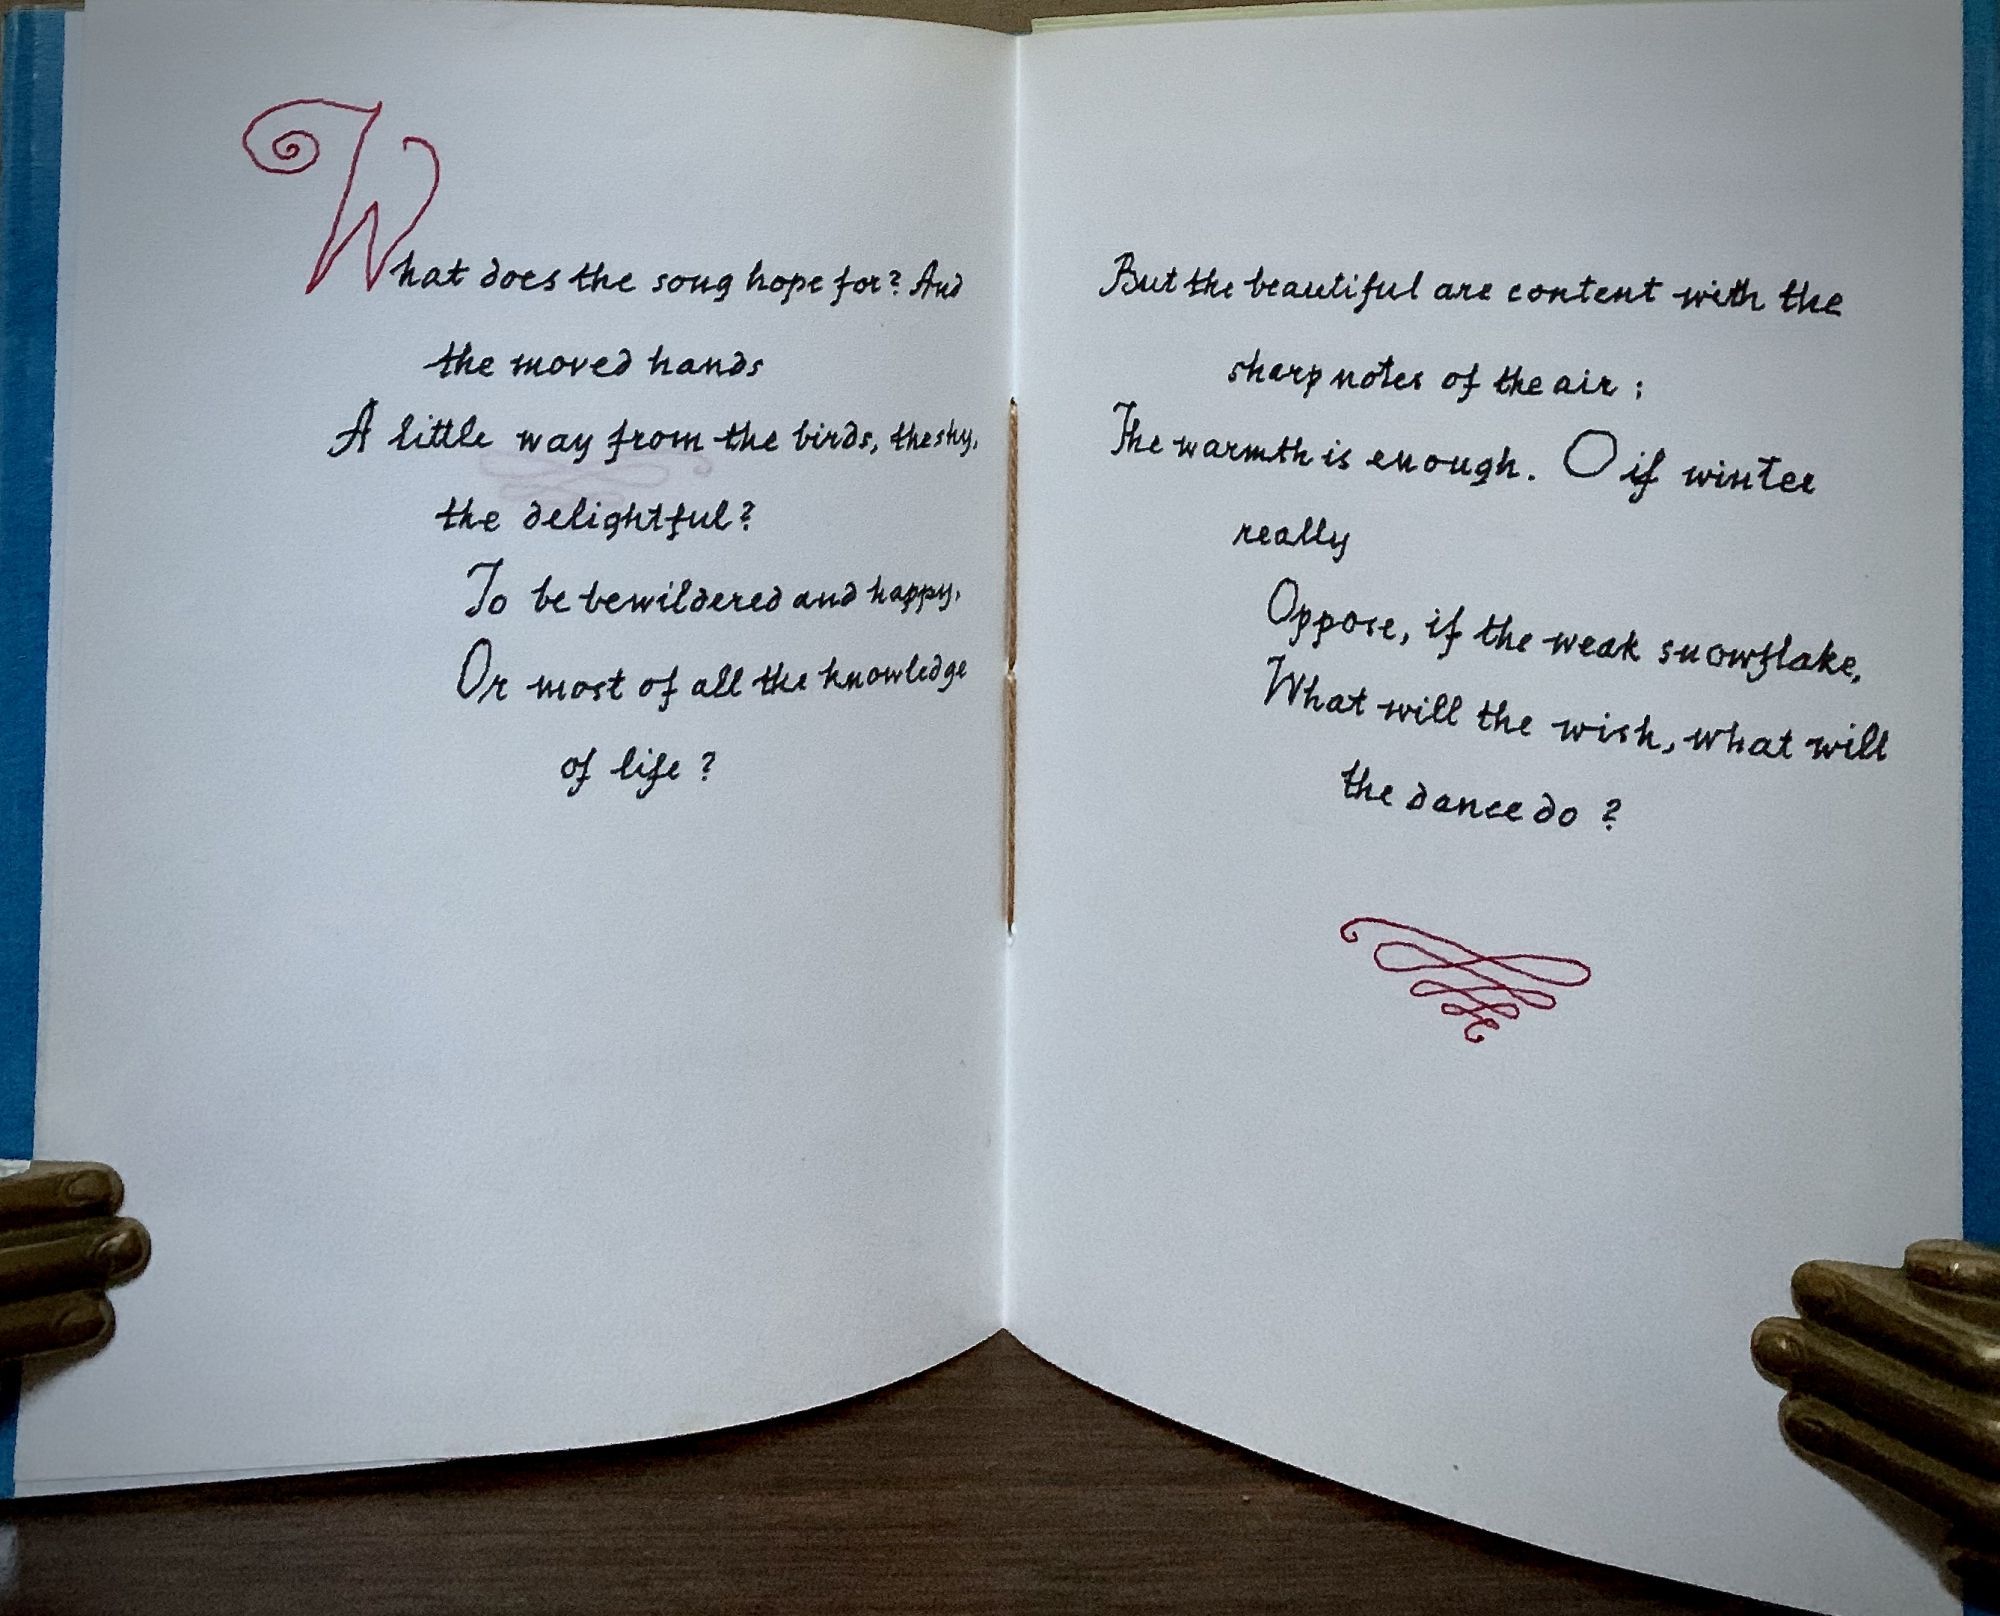 What does the song hope for? And
the moved hands
A little way from the birds, the shy,
the delightful?
To be bewildered and happy,
Or most of all the knowledge
of life?
But the beautiful are content with the
sharp notes of the air;
The warmth is enough. O if winter
really
Oppose, if the weak snowflake,
What will the wish, what will
the dance do?